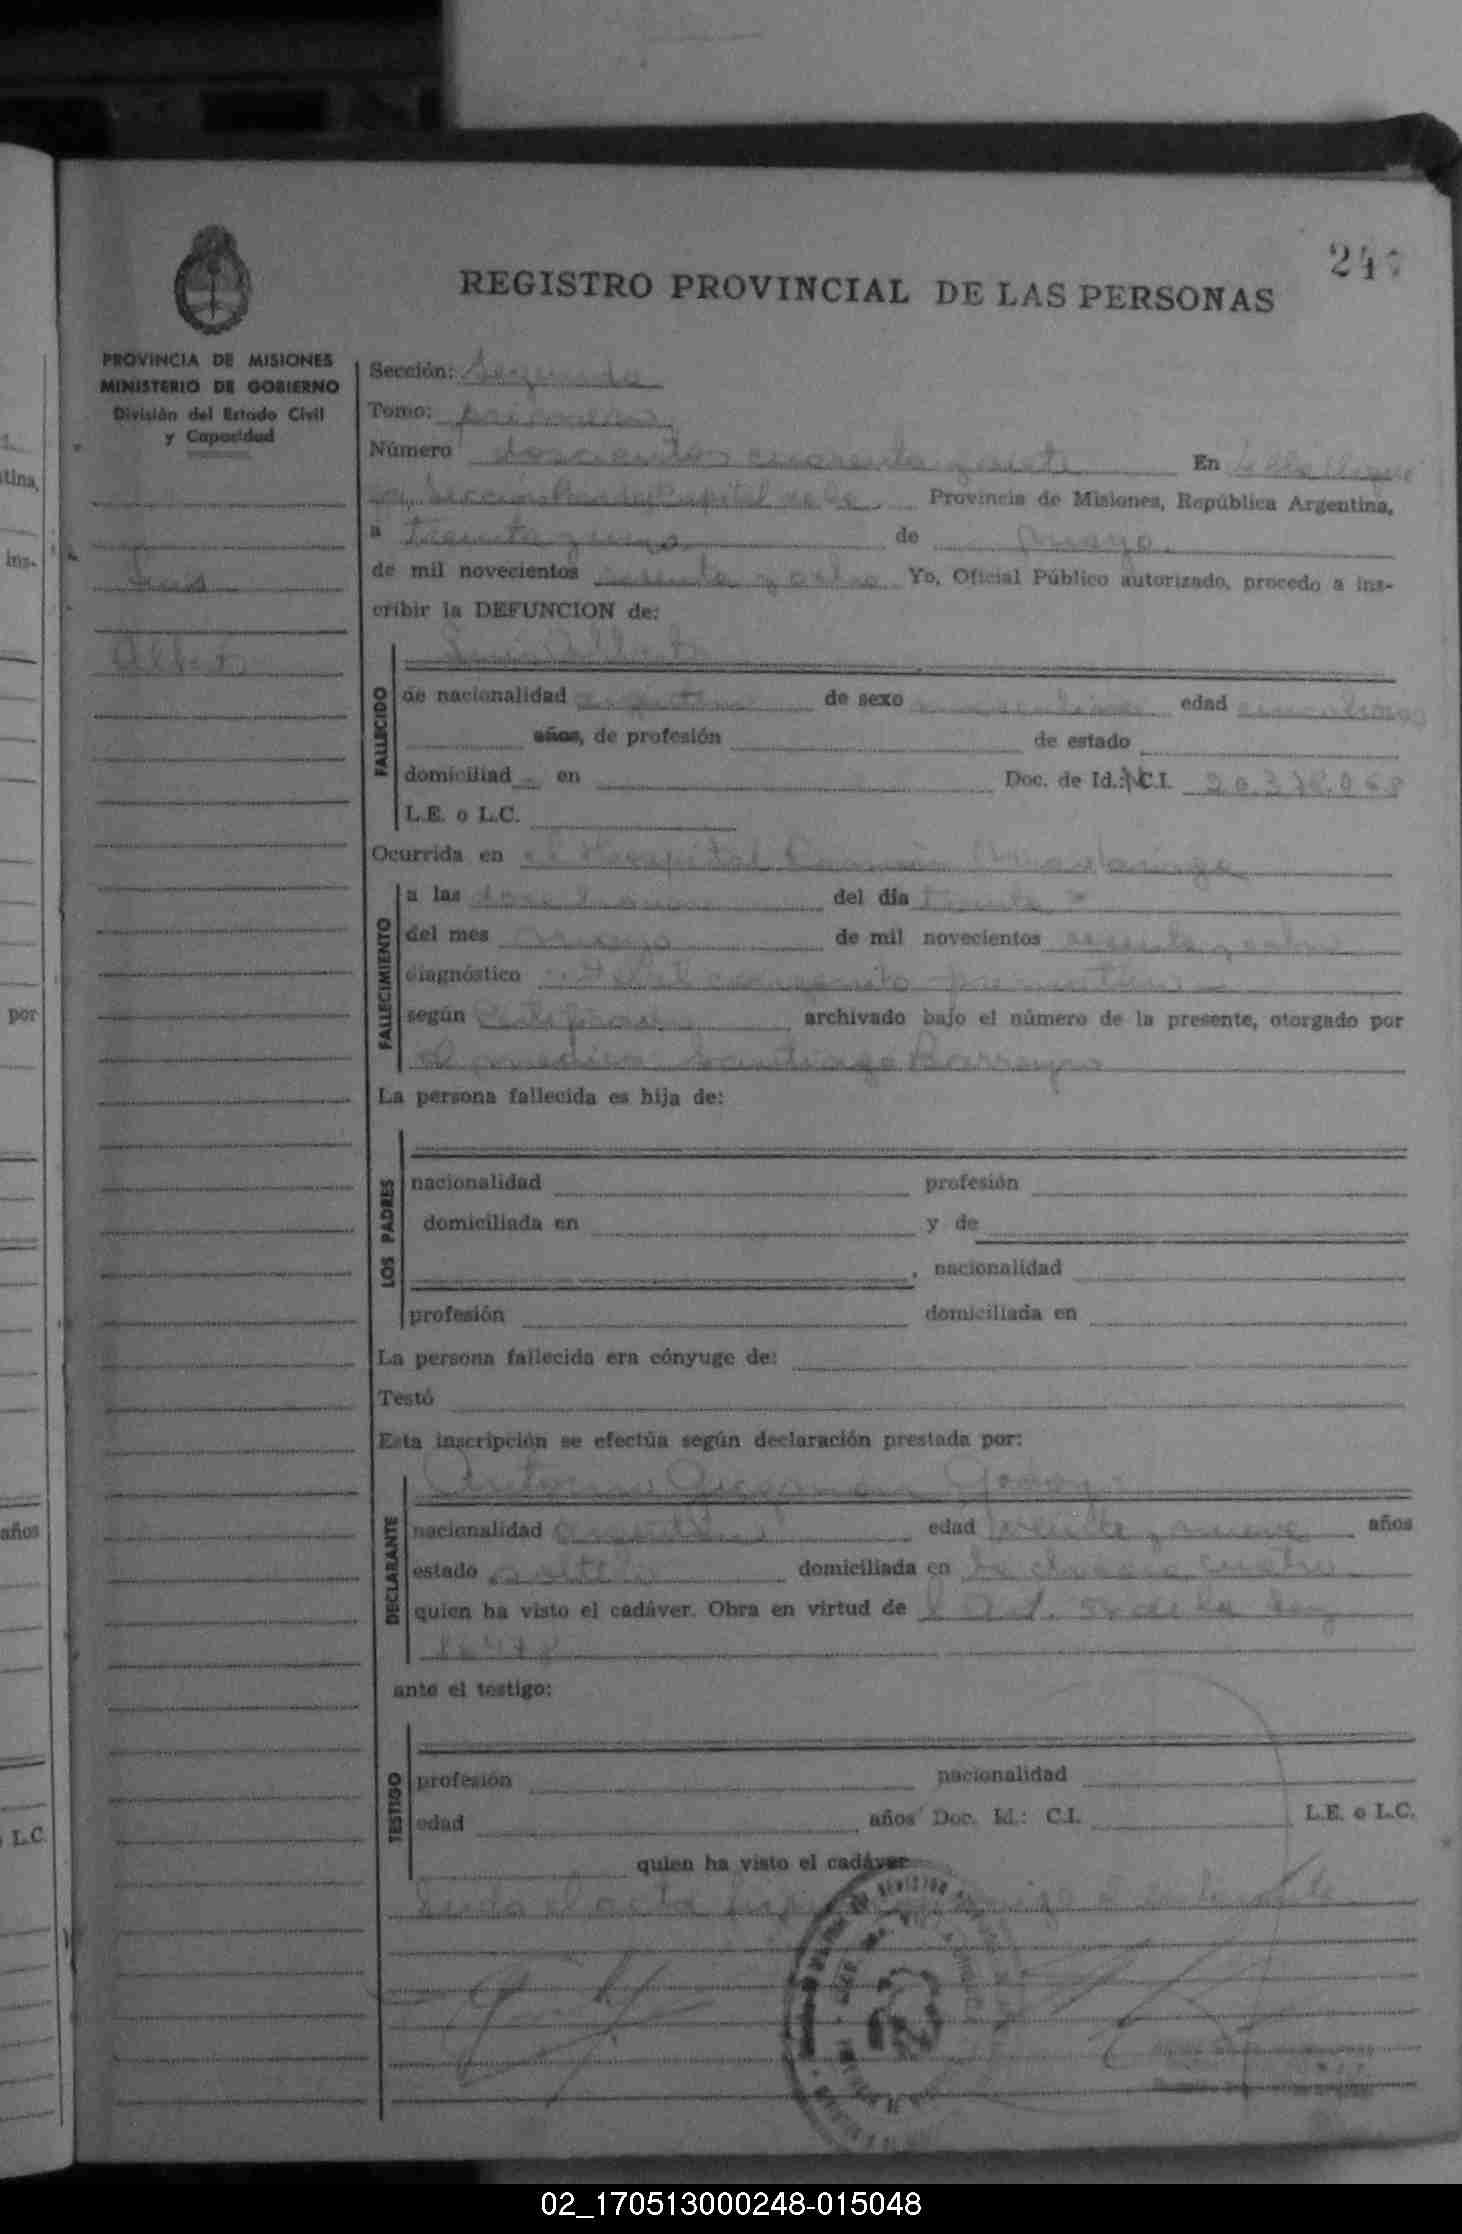 247
REGISTRO PROVINCIAL DE LAS PERSONAS
PROVINCIA DE MISIONES
MINISTERIO DE GOBIERNO
División del Estado Civil
y Capacidad
Luis
Alberto
Sección: Segunda
Tomo: primero
Número doscientos cuarenta y siete En Villa Urquiza
Sección Capital de la Provincia de Misiones, República Argentina,
a treinta y uno de mayo
de mil novecientos sesenta y ocho Yo, Oficial Público autorizado, procedo a ins-
cribir la DEFUNCION de:
Luis Alberto
FALLECIDO
de nacionalidad argentina de sexo masculino edad cinco horas
años, de profesión de estado
domiciliad en Doc. de Id.: C.I. 20.378.068
L.E. o L.C.
Ocurrida en el Hospital Ramón Madariaga
FALLECIMIENTO
a las doce horas del día treinta
del mes mayo de mil novecientos sesenta y ocho
diagnóstico Debil congenito prematuro
según Certificado archivado bajo el número de la presente, otorgado por
el medico Santiago Barreyro
La persona fallecida es hija de:
LOS PADRES
nacionalidad profesión
domiciliada en y de
, nacionalidad
profesión domiciliada en
La persona fallecida era cónyuge de:
Testó
Esta inscripción se efectúa según declaración prestada por:
DECLARANTE
Antonio Godoy
nacionalidad argentina edad veinte y nueve años
estado soltero domiciliada en la chacra cuatro
quien ha visto el cadáver. Obra en virtud de l Art. de la ley
16478
ante el testigo:
TESTIGO
profesión nacionalidad
edad años Doc. Id.: C.I. L.E. o L.C.
quien ha visto el cadáver
Leida el acta conmigo el declarante
tina,
ins-
por
años
o L.C.
02_170513000248-015048